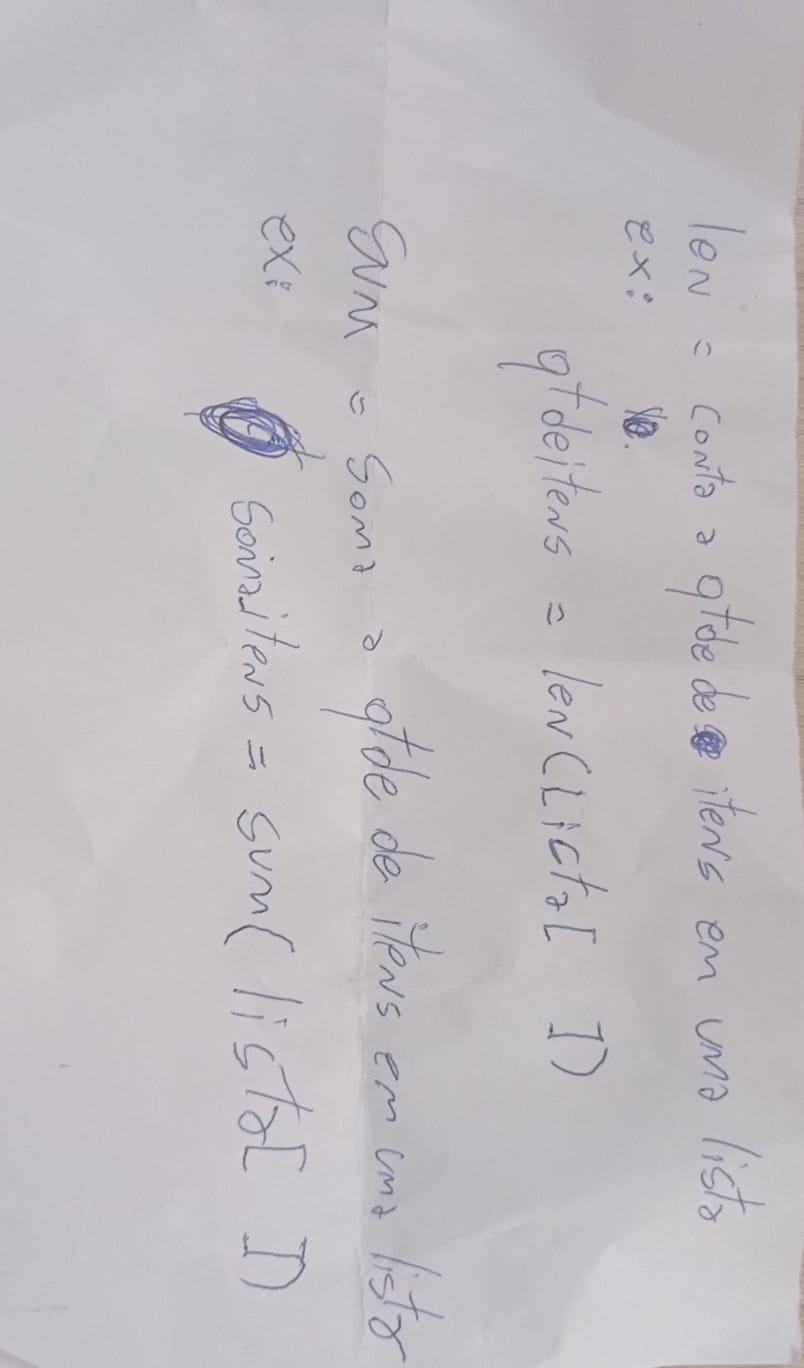 len = conta a qtde de itens em uma lista
ex:
qtdeitens = len(Lista[ ])
sum = soma a qtde de itens em uma lista
ex: somaitens = sum(lista[ ])